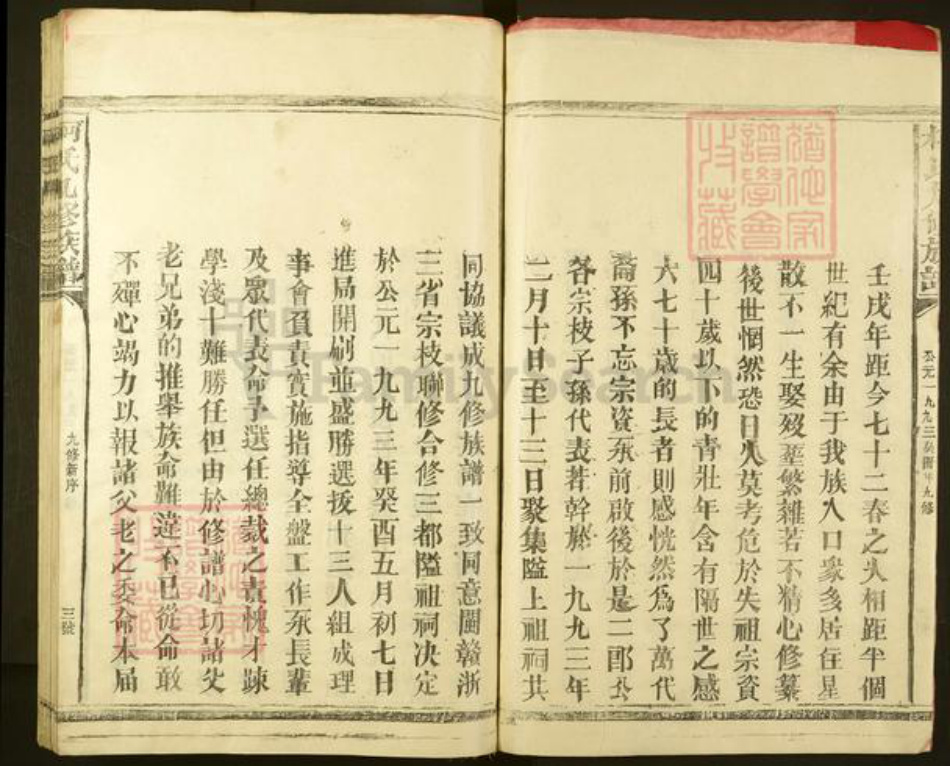 公元一九九三癸酉年九修
壬戌年距今七十二春之久相距半個
世紀有余由于我族人口衆多居住星
散不一生娶歿塟繁雜若不精心修纂
後世惘然恐日久莫考危於失祖宗資
四十歲以下的青壯年含有隔世之感
六七十歲的長者則感恍然爲了萬代
裔孫不忘宗資承前啟後於是二郎公
各宗枝子孫代表若幹於一九九三年
二月十日至十三日聚集隘上祖祠共
同協議成九修族譜一致同意閩贛浙
三省宗枝聯修合修三都隘祖祠决定
於公元一九九三年癸酉五月初七日
進局開刷並盛勝選拔十三人組成理
事會負責實施指導全盤工作承長輩
及眾代表命予選任總裁之責愧才踈
學淺十難勝任但由於修譜心切諸父
老兄弟的推舉族命難違不已從命敢
不殫心竭力以報諸父老之委命本届
柯氏九修族譜
九修新序
三號
猶他家
譜學會
收藏
FamilySearch